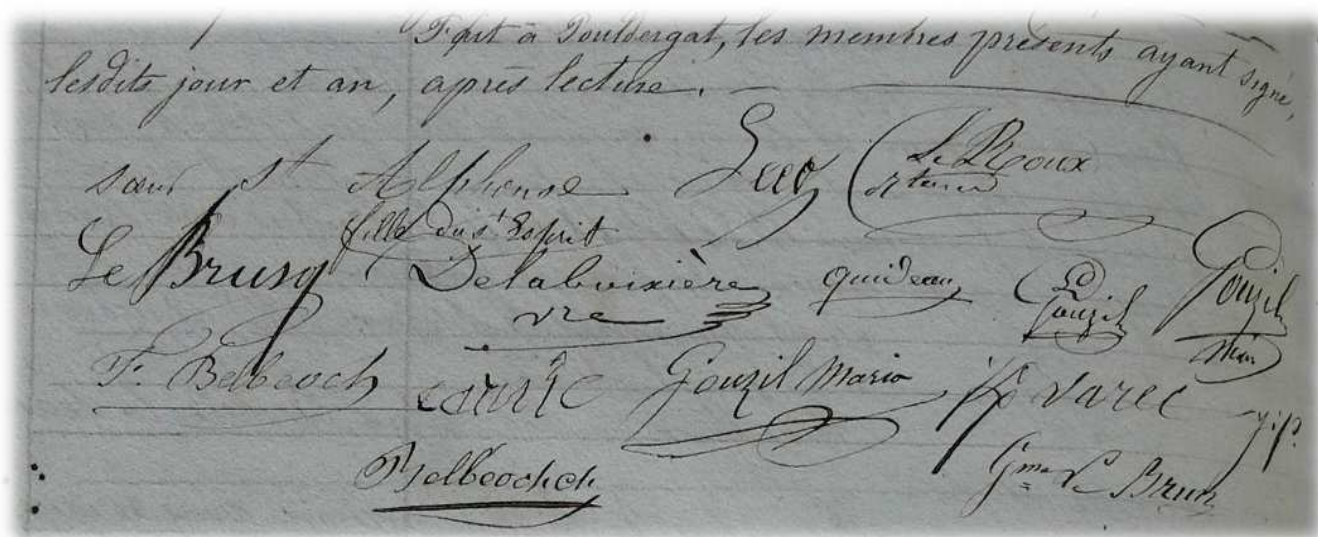 Fait à Pouldergat, les membres présents ayant signé,
lesdits jour et an, après lecture. —
sœur St Alphonse
fille du St Esprit
Le Roux
Le Brusq Delabuixière quideau Gouzil Gouzil
vre
F. Belbeoch Gouzil Maria varec
Belbeochch Gme Le Brun